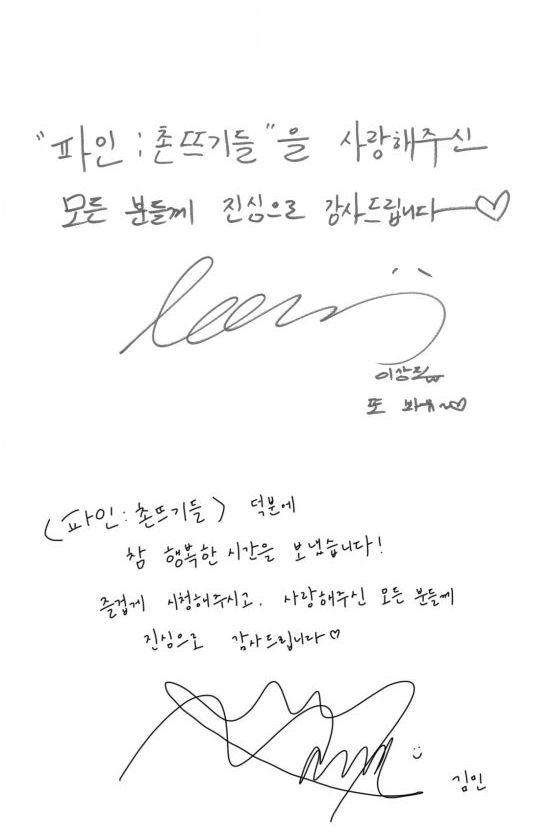 "파인 : 촌뜨기들"을 사랑해주신
모든 분들께 진심으로 감사드립니다♡
이상진
또 봐유~♡
<파인 : 촌뜨기들> 덕분에
참 행복한 시간을 보냈습니다!
즐겁게 시청해주시고, 사랑해주신 모든 분들께
진심으로 감사드립니다♡
김민